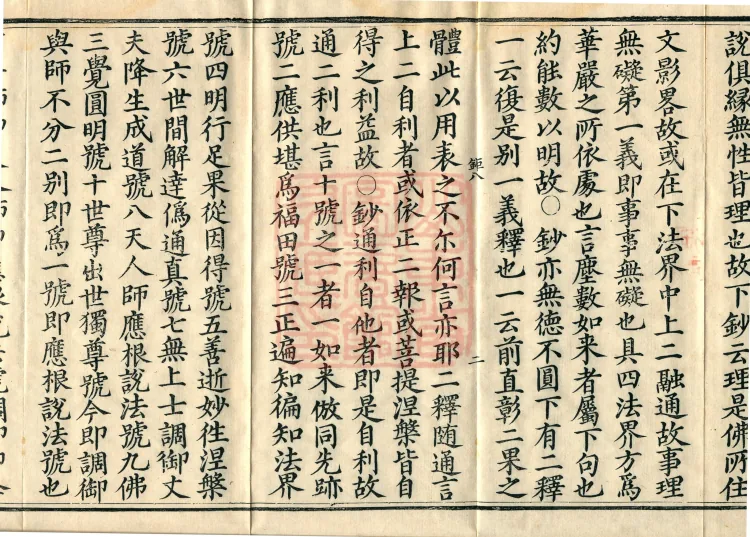 說俱緣無性皆理也故下鈔云理是佛所住
文影畧故或在下法界中上二融通故事理
無礙第一義即事事無礙也具四法界方為
華嚴之所依處也言塵數如来者屬下句也
約能數以明故○鈔亦無德不圓下有二釋
一云復是別一義釋也一云前直彰二果之
鉅八
二
體此以用表之不尔何言亦耶二釋随通言
上二自利者或依正二報或菩提涅槃皆自
得之利益故○鈔通利自他者即是自利故
通二利也言十號之一者一如来倣同先跡
號二應供堪爲福田號三正遍知徧知法界
號四明行足果從因得號五善逝妙徃涅槃
號六世間解達僞通真號七無上士調御丈
夫降生成道號八天人師應根説法號九佛
三覺圓明號十世尊出世獨尊號今即調御
與師不分二别即爲一號即應根説法號也